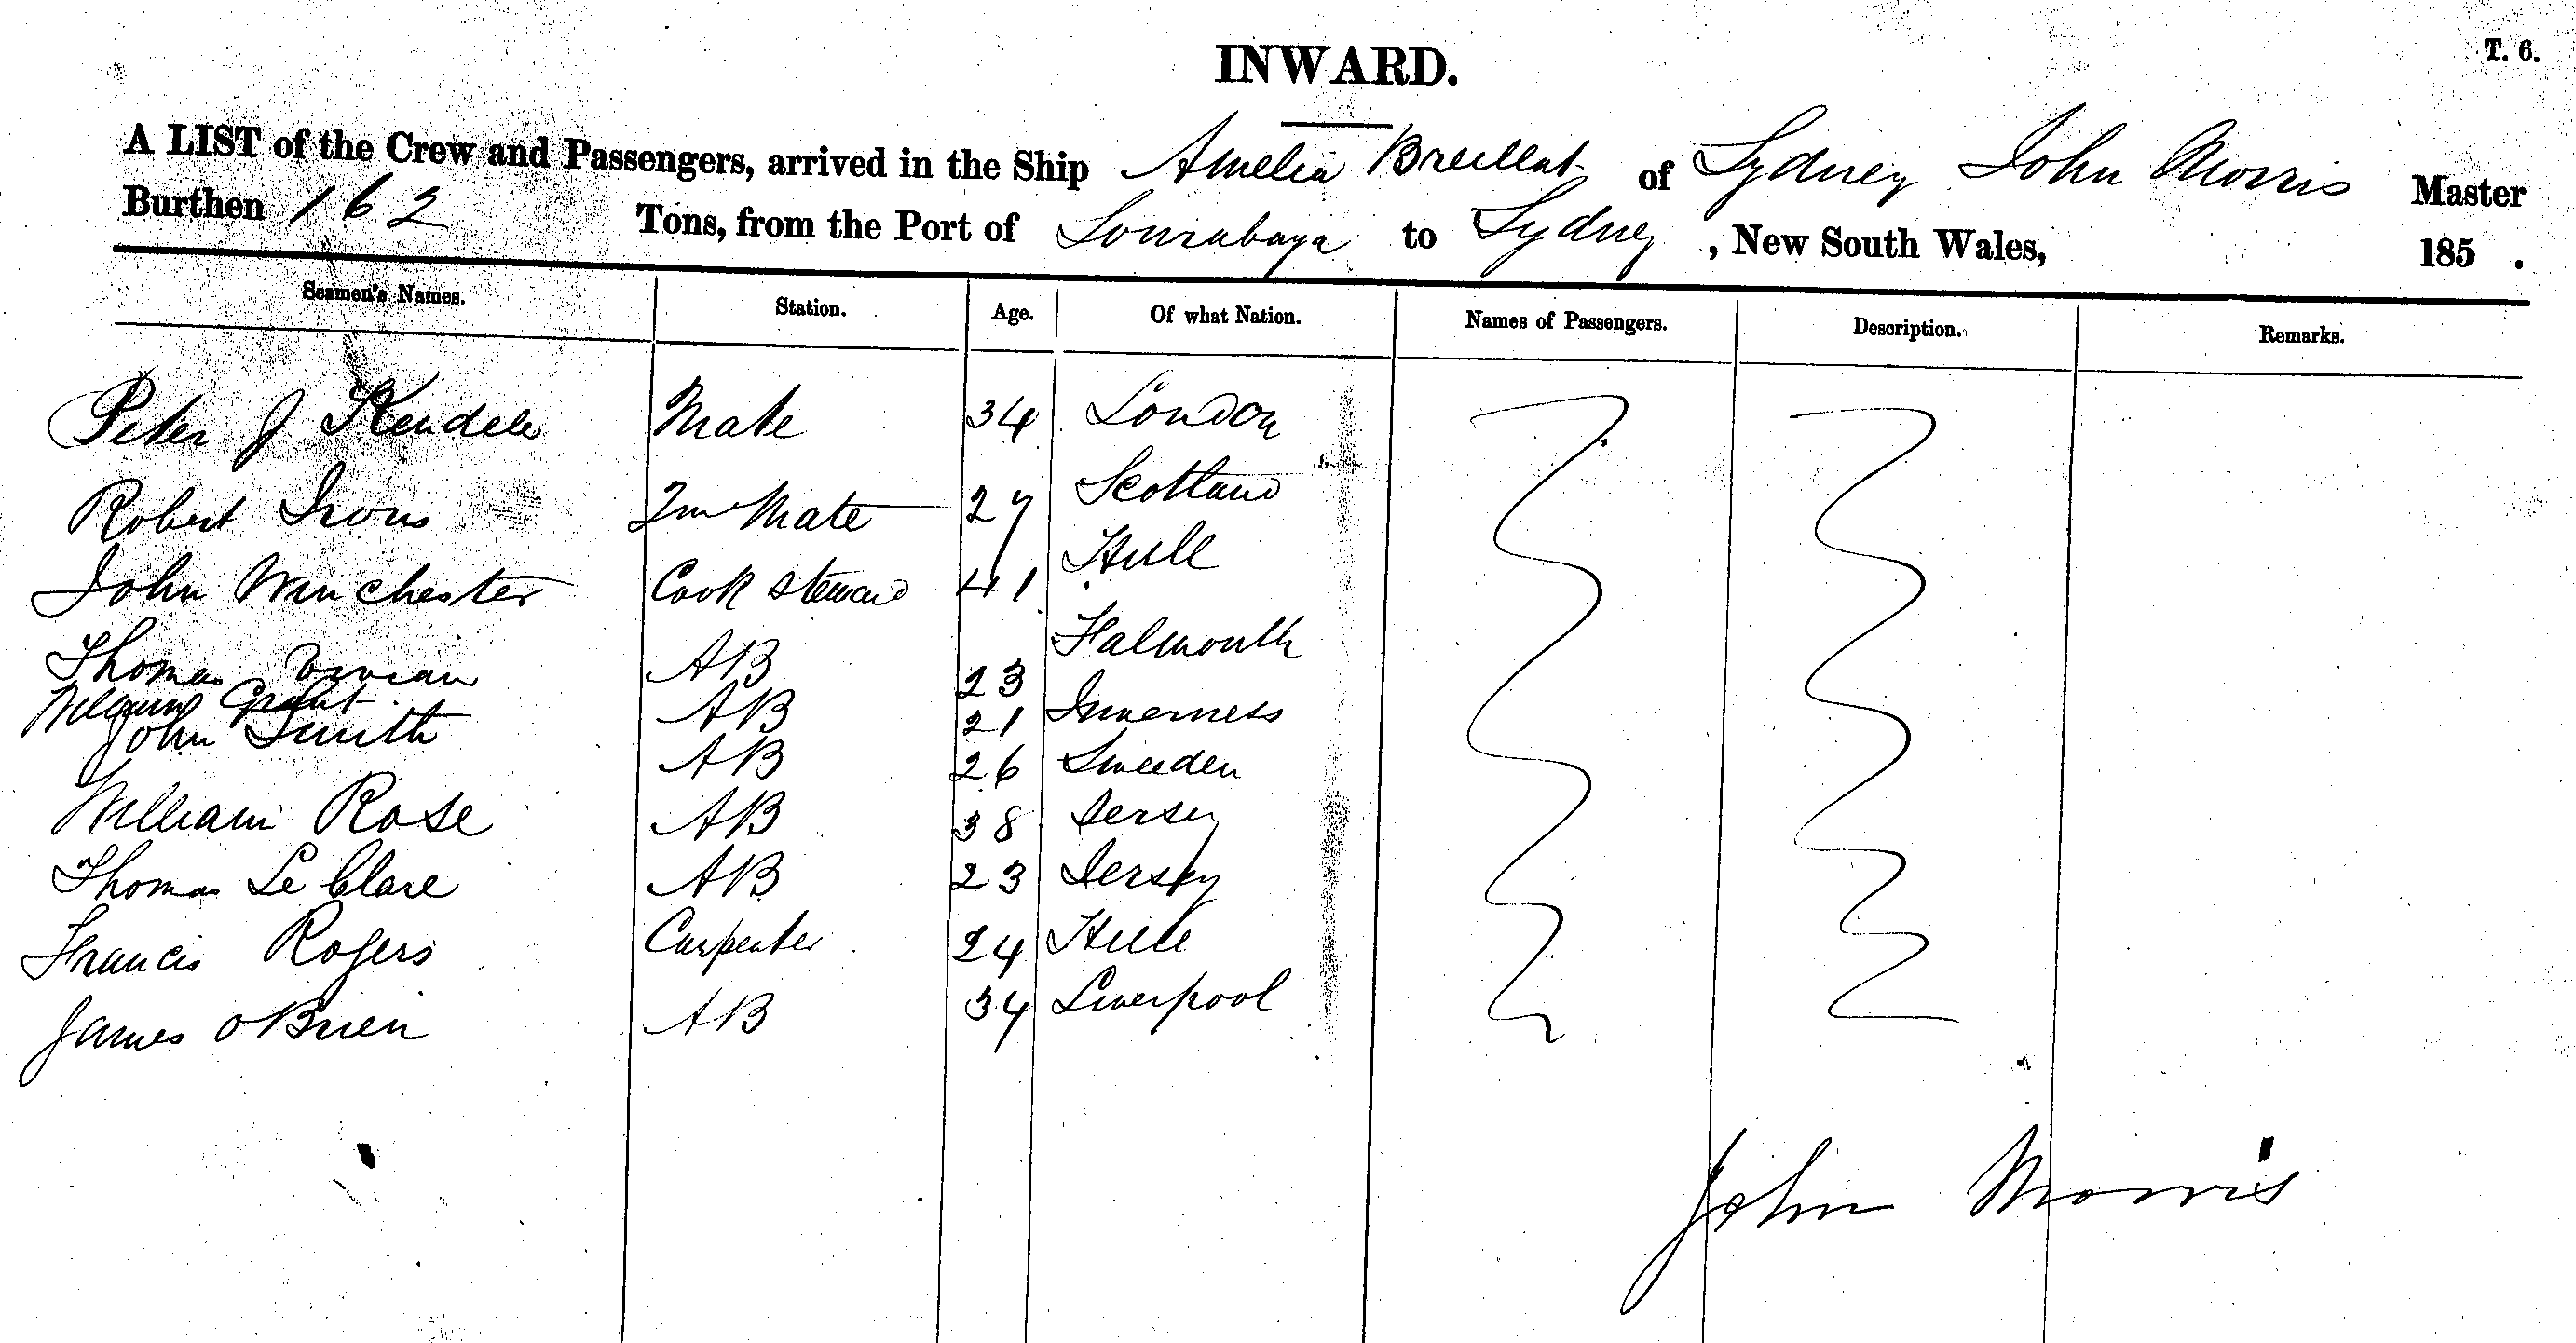 INWARD.
T. 6.
A LIST of the Crew and Passengers, arrived in the Ship Amelia Breillat of Sydney John Morris Master
Burthen 162 Tons, from the Port of Sourabaya to Sydney, New South Wales, 185 .
Seamen's Names. Station. Age. Of what Nation. Names of Passengers. Description. Remarks.
Peter J Mate 34 London
Robert Irons Mate 27 Scotland
John Winchester Cook Steward 41 Hull
Thomas Vivian AB 23 Falmouth
Grant AB 21 Inverness
John Smith AB 26 Sweeden
William Rose AB 38 Jersey
Thomas Le Clare AB 23 Jersey
Francis Rogers Carpenter 24 Hull
James OBrien AB 34 Liverpool
John Morris